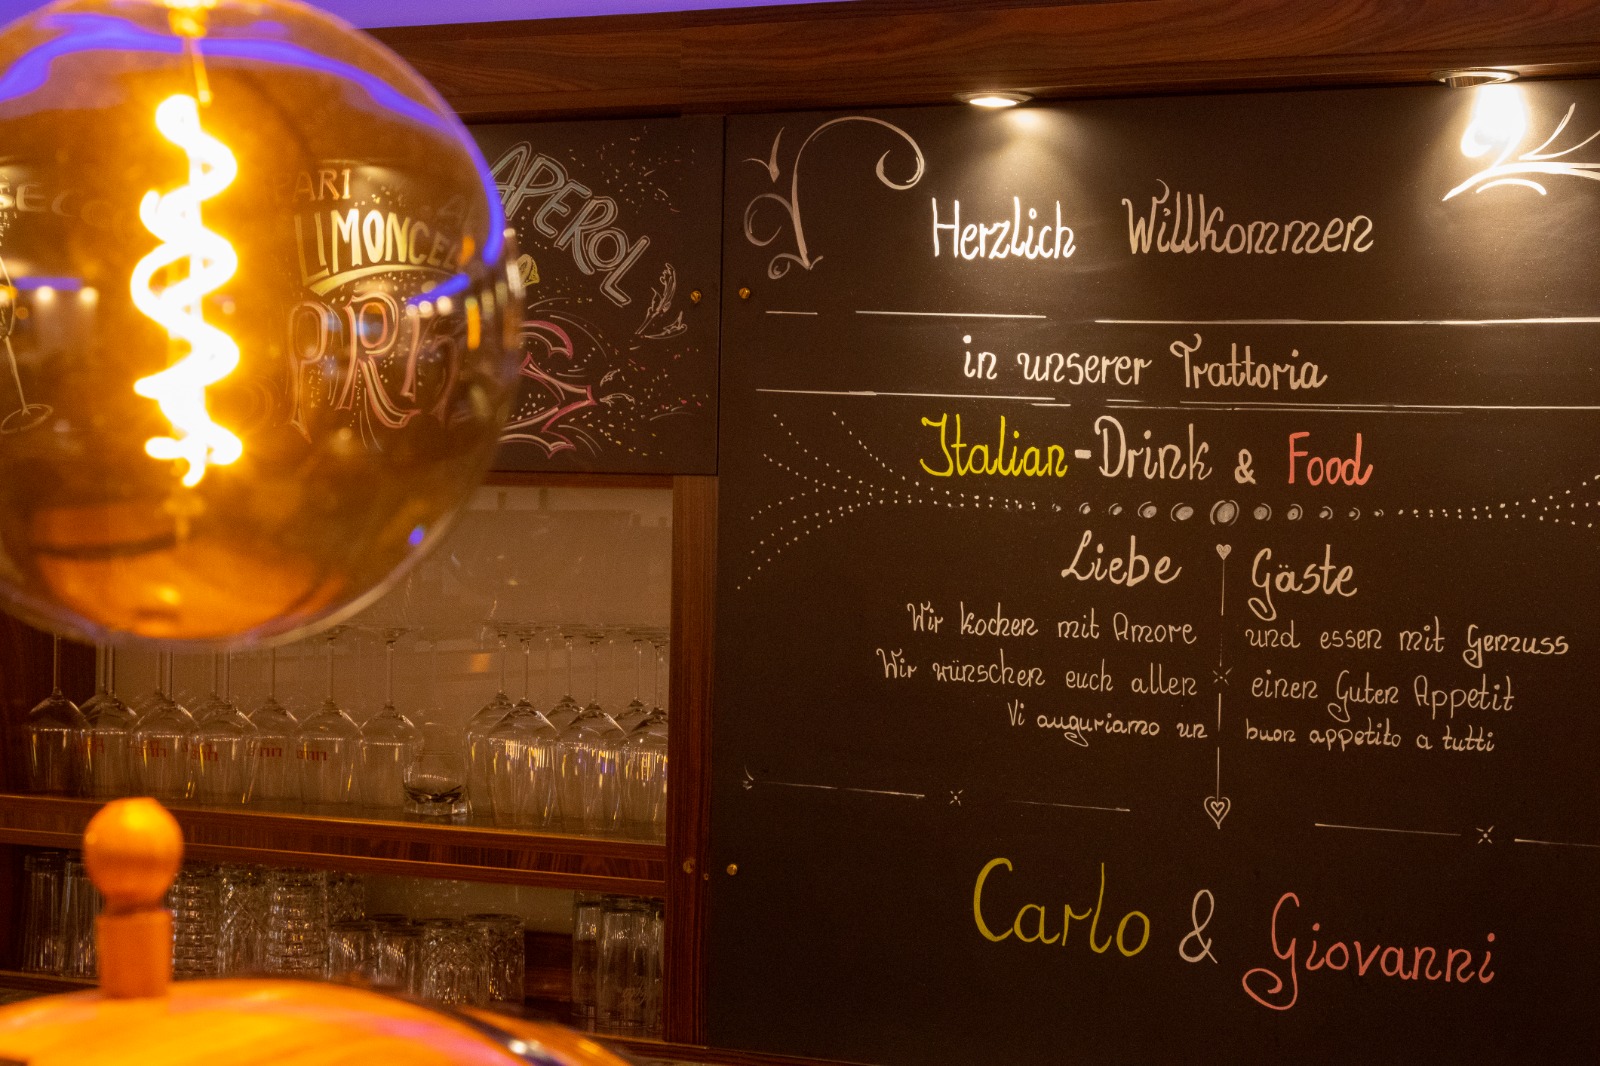 LIMONCELLO
APEROL
Herzlich Willkommen
in unserer Trattoria
Italian-Drink & Food
Liebe Gäste
Wir kochen mit Amore und essen mit Genuss
Wir wünschen euch allen einen Guten Appetit
Vi auguriamo un buon appetito a tutti
Carlo & Giovanni